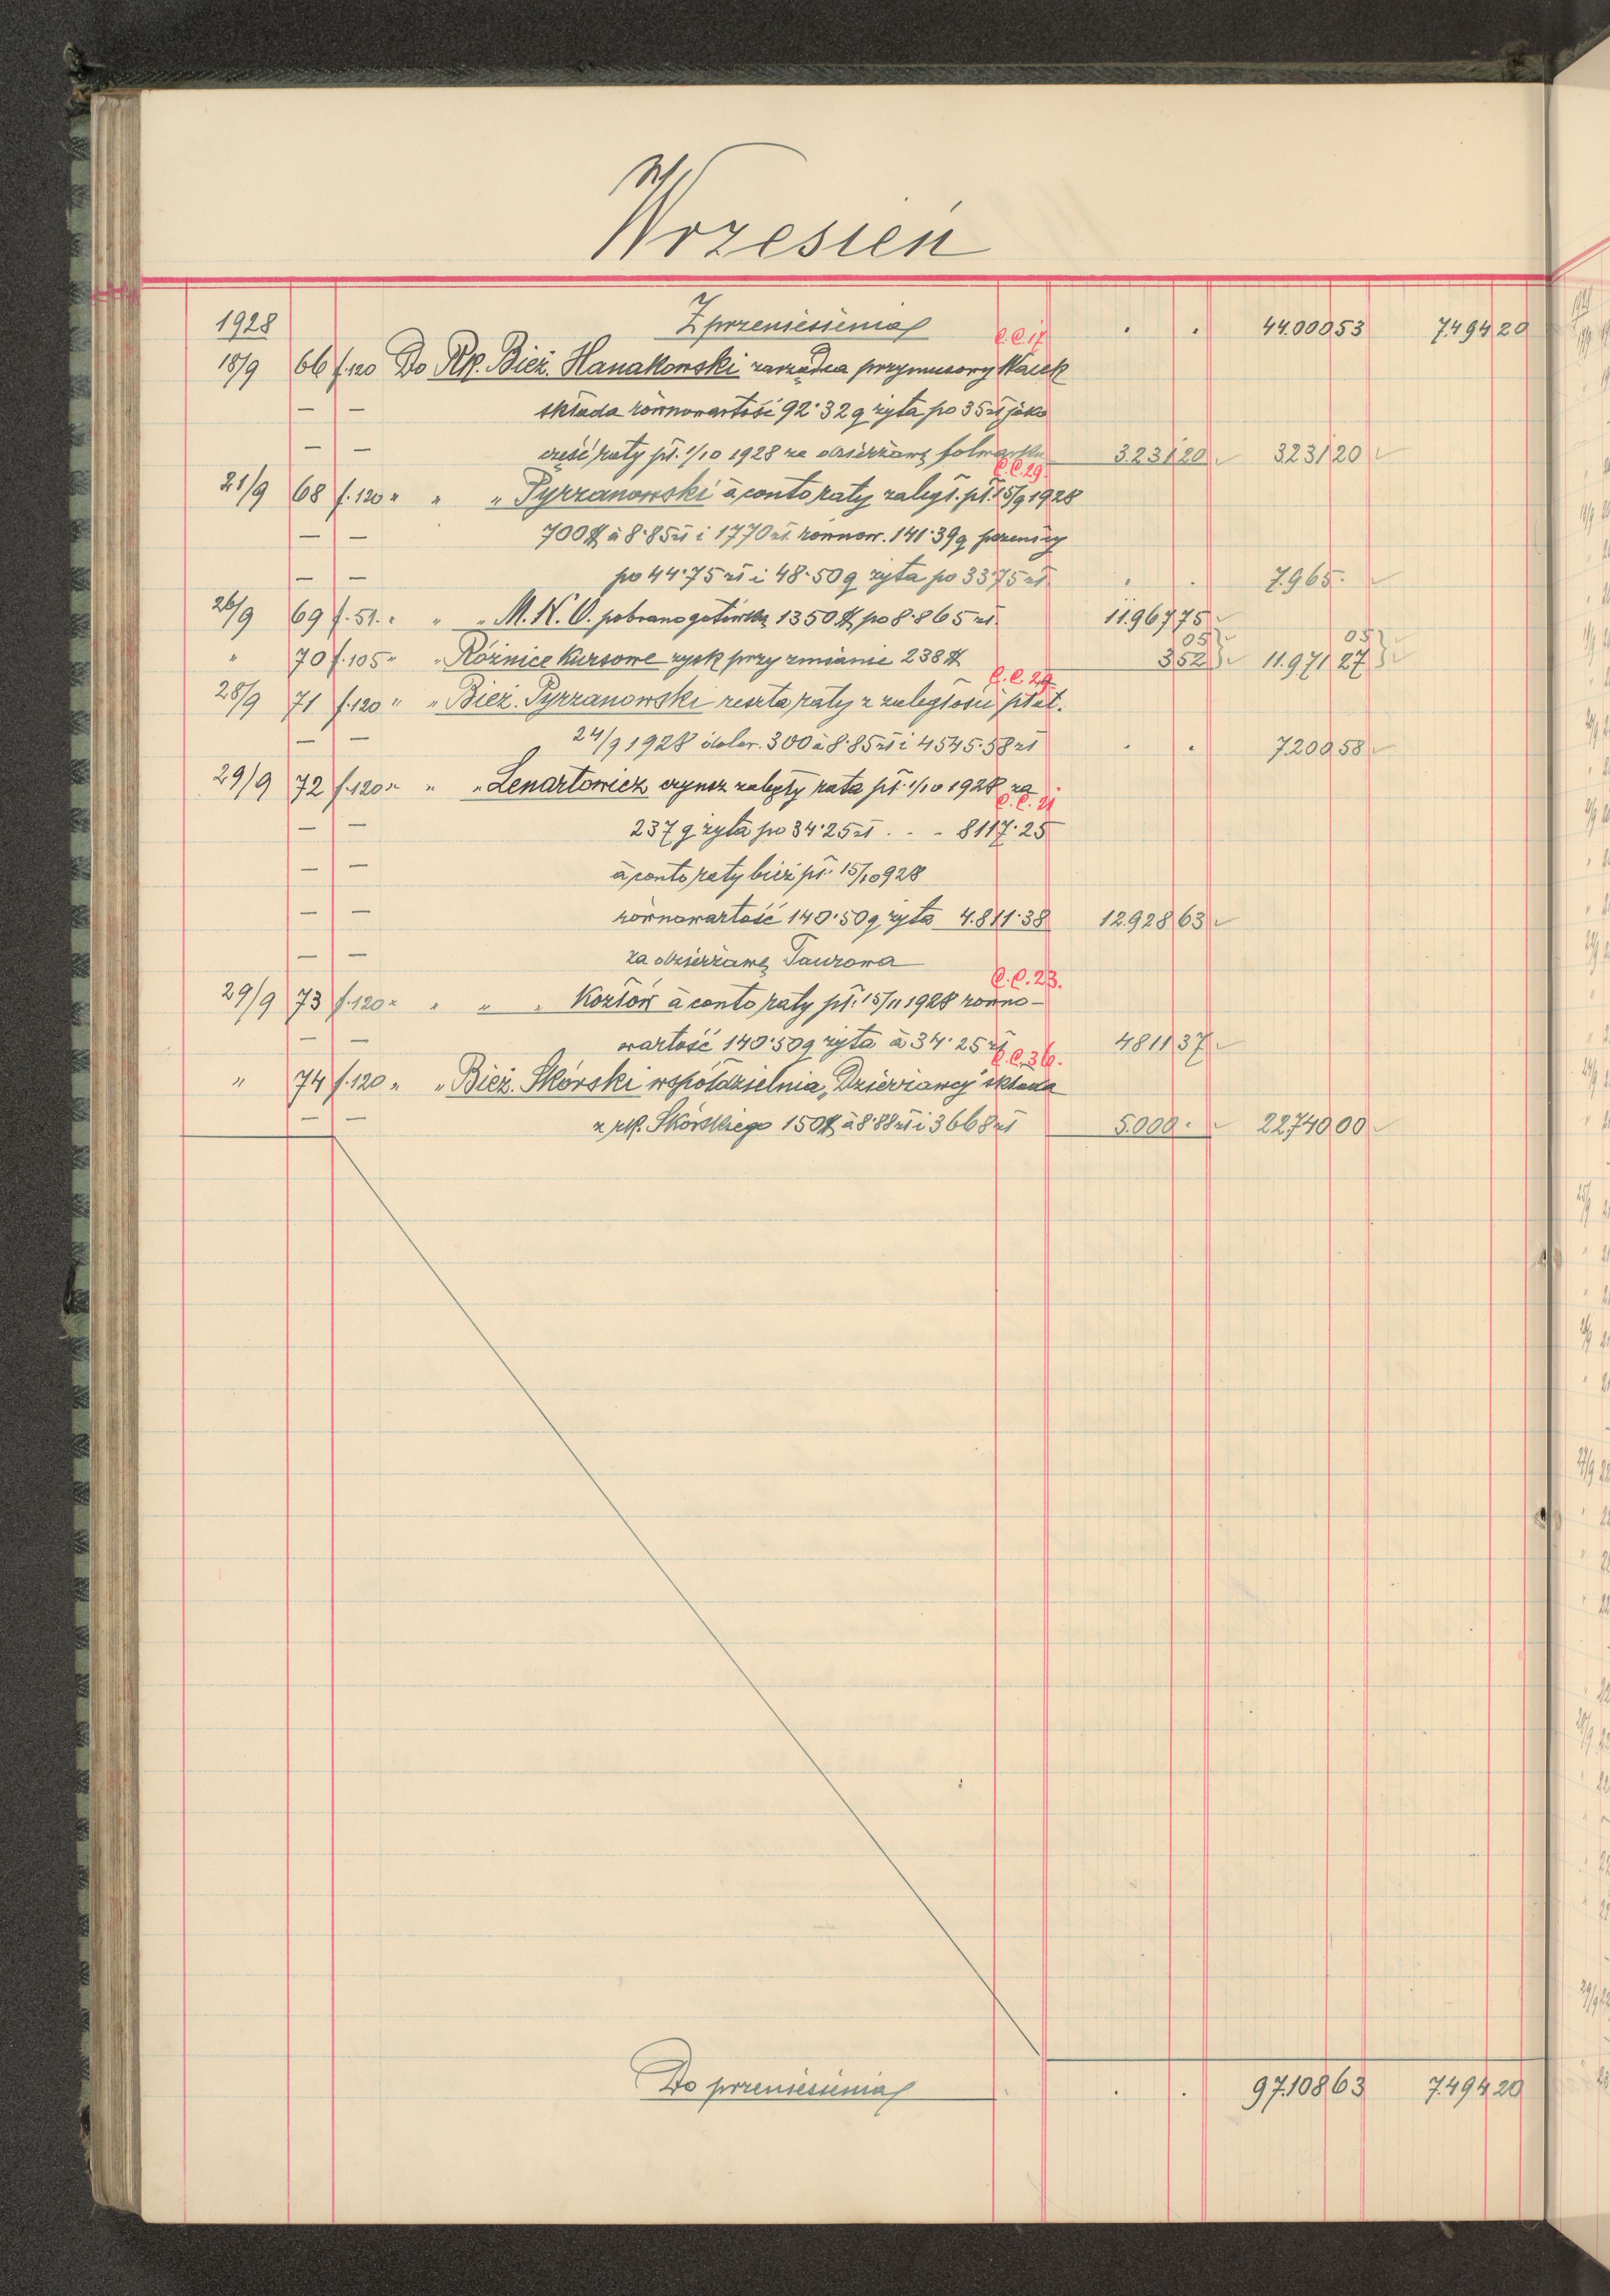 Wrzesień
1928 Z przeniesienia . . 44.000 53 7.494 20
C.C.17.
18/9 66 f.120 Do Rk. Bież. Hanakowski zarządca przymusowy Wacek
— — składa równowartość 92·32 q żyta po 35 zł jako
— — część raty pł. 1/10 1928 za dzierżawę folwarku 3.231 20 3231 20
C.C.29.
21/9 68 f.120 " " " Pyrzanowski à conto raty zaległ. pł. 15/9 1928
— — 700 $ à 8·85 zł i 1770 zł. równow. 141·39 q pszenicy
— — po 44·75 zł i 48·50 q żyta po 33·75 zł . . 7.965 ·
26/9 69 f.51. " " " M.K.O. pobrano gotówką 1350 $ po 8·865 zł. 11.967 75
05 05
" 70 f.105 " " Różnice Kursowe zysk przy zmianie 238 $ 3 52 11.971 27
C.C.29
28/9 71 f.120 " " Bież. Pyrzanowski reszta raty z zaległości płat.
— — 24/9 1928 dolar. 300 à 8·85 zł i 4545·58 zł . . 7.200 58
29/9 72 f.120 " " " Lenartowicz czynsz zaległy rata pł. 1/10 1928 za
C.C.21
— — 237 q żyta po 34·25 zł . . - 8117·25
— — à conto raty bież pł. 15/10 928
— — równowartość 140·50 q żyta 4.811·38 12.928 63
— — za dzierżawę Taurowa
C.C.23.
29/9 73 f.120 " " " " Kozłów à conto raty pł. 15/11 1928 równo-
— — wartość 140·50 q żyta à 34·25 zł 4811 37
C.C.36.
" 74 f.120 " " Bież. Skórski współdzielnia „Dzierżawcy" składa
— — z rk. Skórskiego 150 $ à 8·88 zł i 3668 zł 5.000 · 22740 00
Do przeniesienia . . 97.108 63 7.494 20